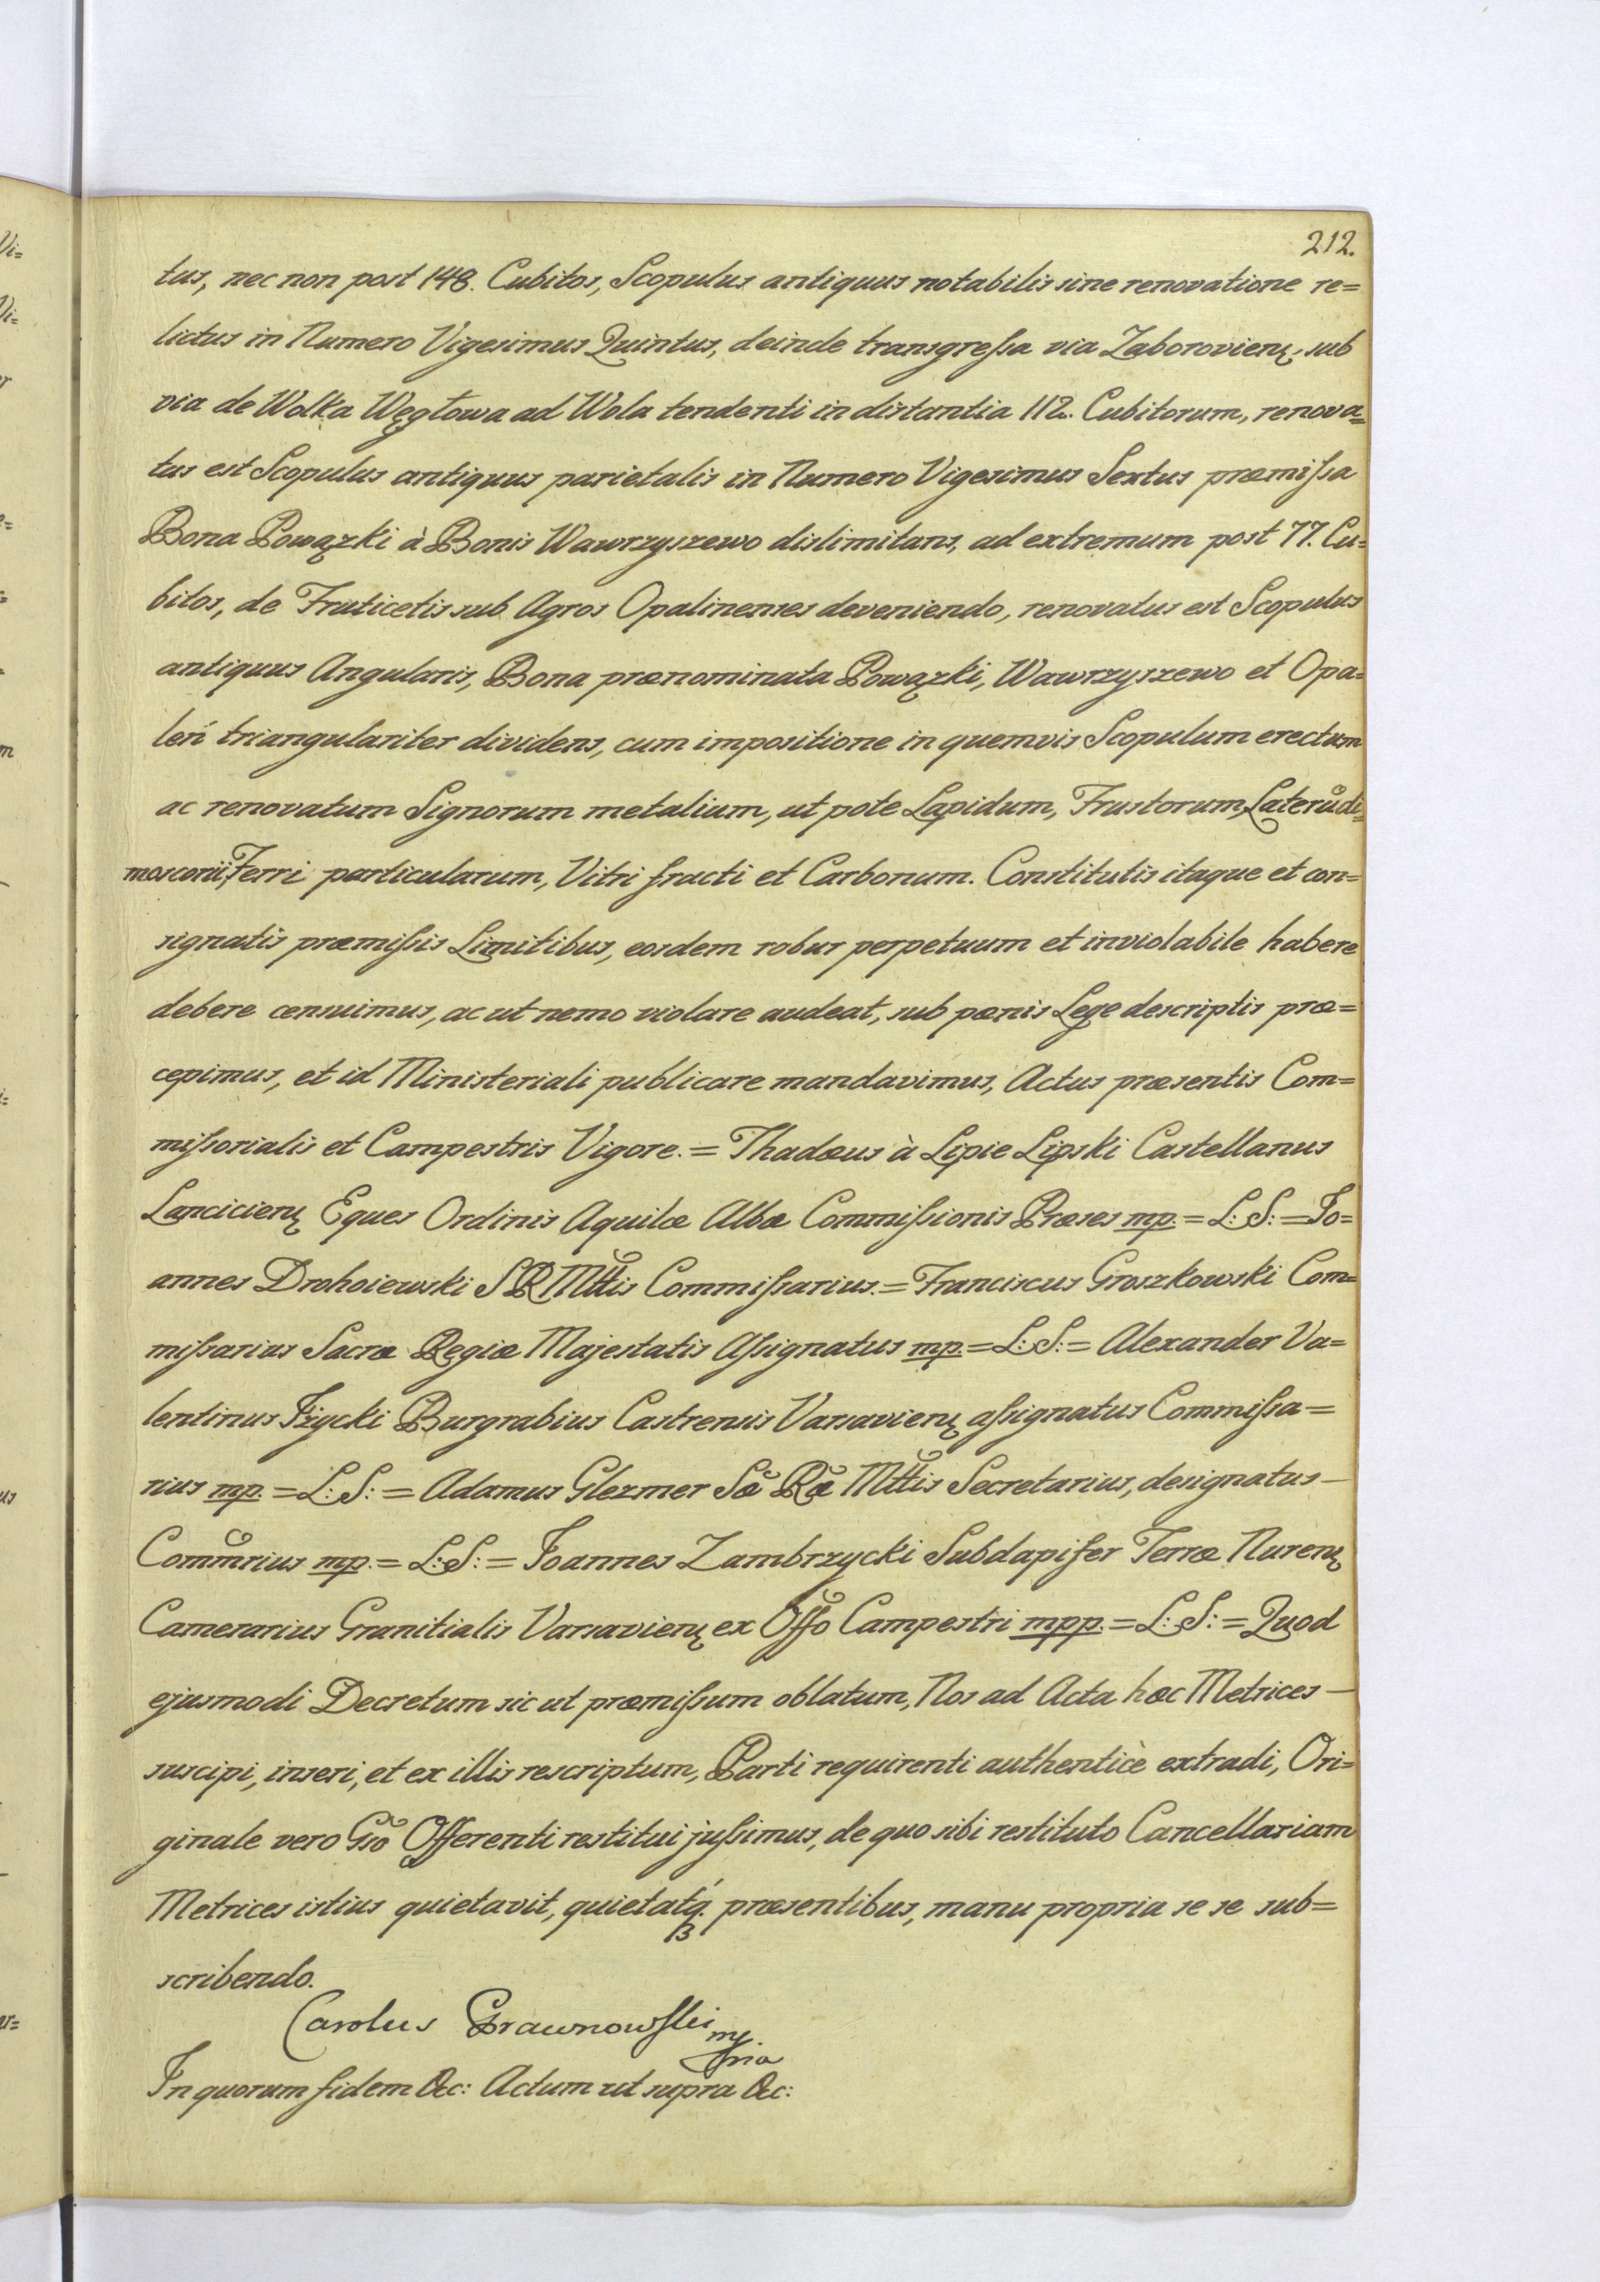 212.
tus, nec non post 148. Cubitos, Scopulus antiquus notabilis sine renovatione re=
lictus in Numero Vigesimus Quintus, deinde transgreſsa via Zaborovienȝ, sub
via de Wolka Węgłowa ad Wola tendenti in distantia 112. Cubitorum, renova=
tus est Scopulus antiquus parietalis in Numero Vigesimus Sextus præmiſsa
Bona Powązki à Bonis Wawrzyszewo dislimitans, ad extremum post 77. Cu=
bitos, de Fruticetis sub Agros Opalinenses deveniendo, renovatus est Scopulus
antiquus Angularis, Bona prænominata Powązki, Wawrzyszewo et Opa=
leń triangulariter dividens, cum impositione in quemvis Scopulum erectum
ac renovatum Signorum metalium, ut pote Lapidum, Frustorum, Laterū di=
moscorii, Ferri particularum, Vitri fracti et Carbonum. Constitutis itaque et con=
signatis præmiſsis Limitibus, eosdem robur perpetuum et inviolabile habere
debere censuimus, ac ut nemo violare audeat, sub pœnis Lege descriptis præ=
cepimus, et id Ministeriali publicare mandavimus, Actus præsentis Com=
miſsorialis et Campestris Vigore. = Thadæus à Lipie Lipski Castellanus
Lancicienȝ Eques Ordinis Aquilæ Albæ Commiſsionis Præses mp. = L: S: = Jo=
annes Drohoiewski S R Mttis Commiſsarius. = Franciscus Groszkowski Com=
miſsarius Sacræ Regiæ Majestatis Aſsignatus mp. = L: S: = Alexander Va=
lentinus Jżycki Burgrabius Castrensis Varsavienȝ aſsignatus Commiſsa=
rius mp. = L: S: = Adamus Glezmer Sæ Ræ Mttis Secretarius, designatus —
Commrius mp. = L: S: = Joannes Zambrzycki Subdapifer Terræ Nurenȝ
Camerarius Granitialis Varsavienȝ ex Offo Campestri mpp. = L: S: = Quod
ejusmodi Decretum sic ut præmiſsum oblatum, Nos ad Acta hæc Metrices —
suscipi, inseri, et ex illis rescriptum, Parti requirenti authenticè extradi, Ori=
ginale vero Gso Offerenti restitui juſsimus, de quo sibi restituto Cancellariam
Metrices istius quietavit, quietatq́. præsentibus, manu propria se se sub=
scribendo.
Carolus Prawnowſki
mp
pria
In quorum fidem &c: Actum ut supra &c: